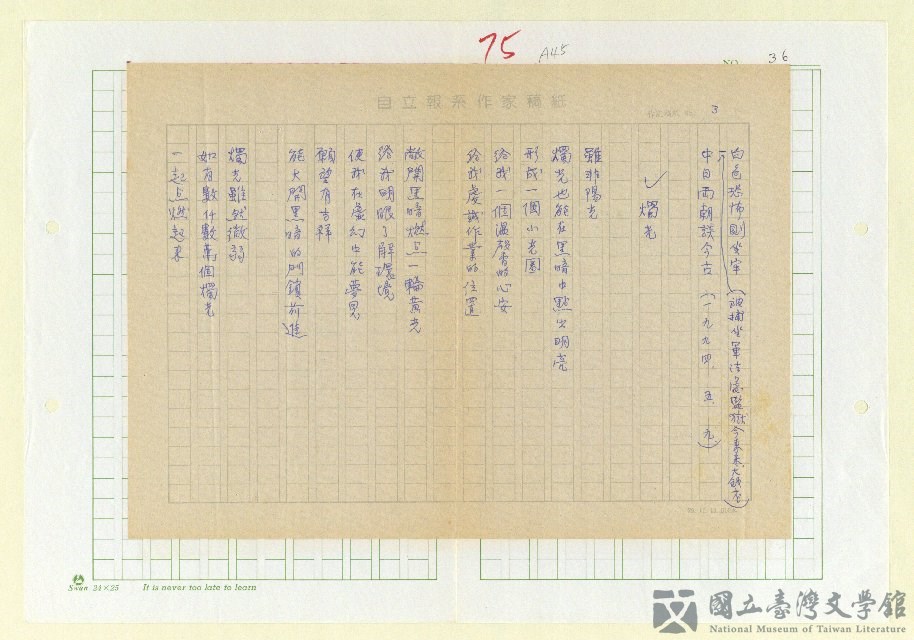 75
A45
NO. 36
自立報系作家稿紙
3
白色恐怖則坐牢(被捕坐軍法處監獄今來來大飯店)
中日兩朝談今古(一九九四、五、九)
✓燭光
雖非陽光
燭光也能在黑暗中點出明亮
形成一個小光圈
給我一個溫馥的心安
給我虔誠作業的位置
敞開黑暗燃点一輪黃光
給我明眼了解環境
使我在虛幻出能夢見
願望有吉祥
能大開黑暗的門鎖前進
燭光雖然微弱
如有數什數萬個燭光
一起点燃起來
Swan 24×25
It is never too late to learn
國立臺灣文學館
National Museum of Taiwan Literature